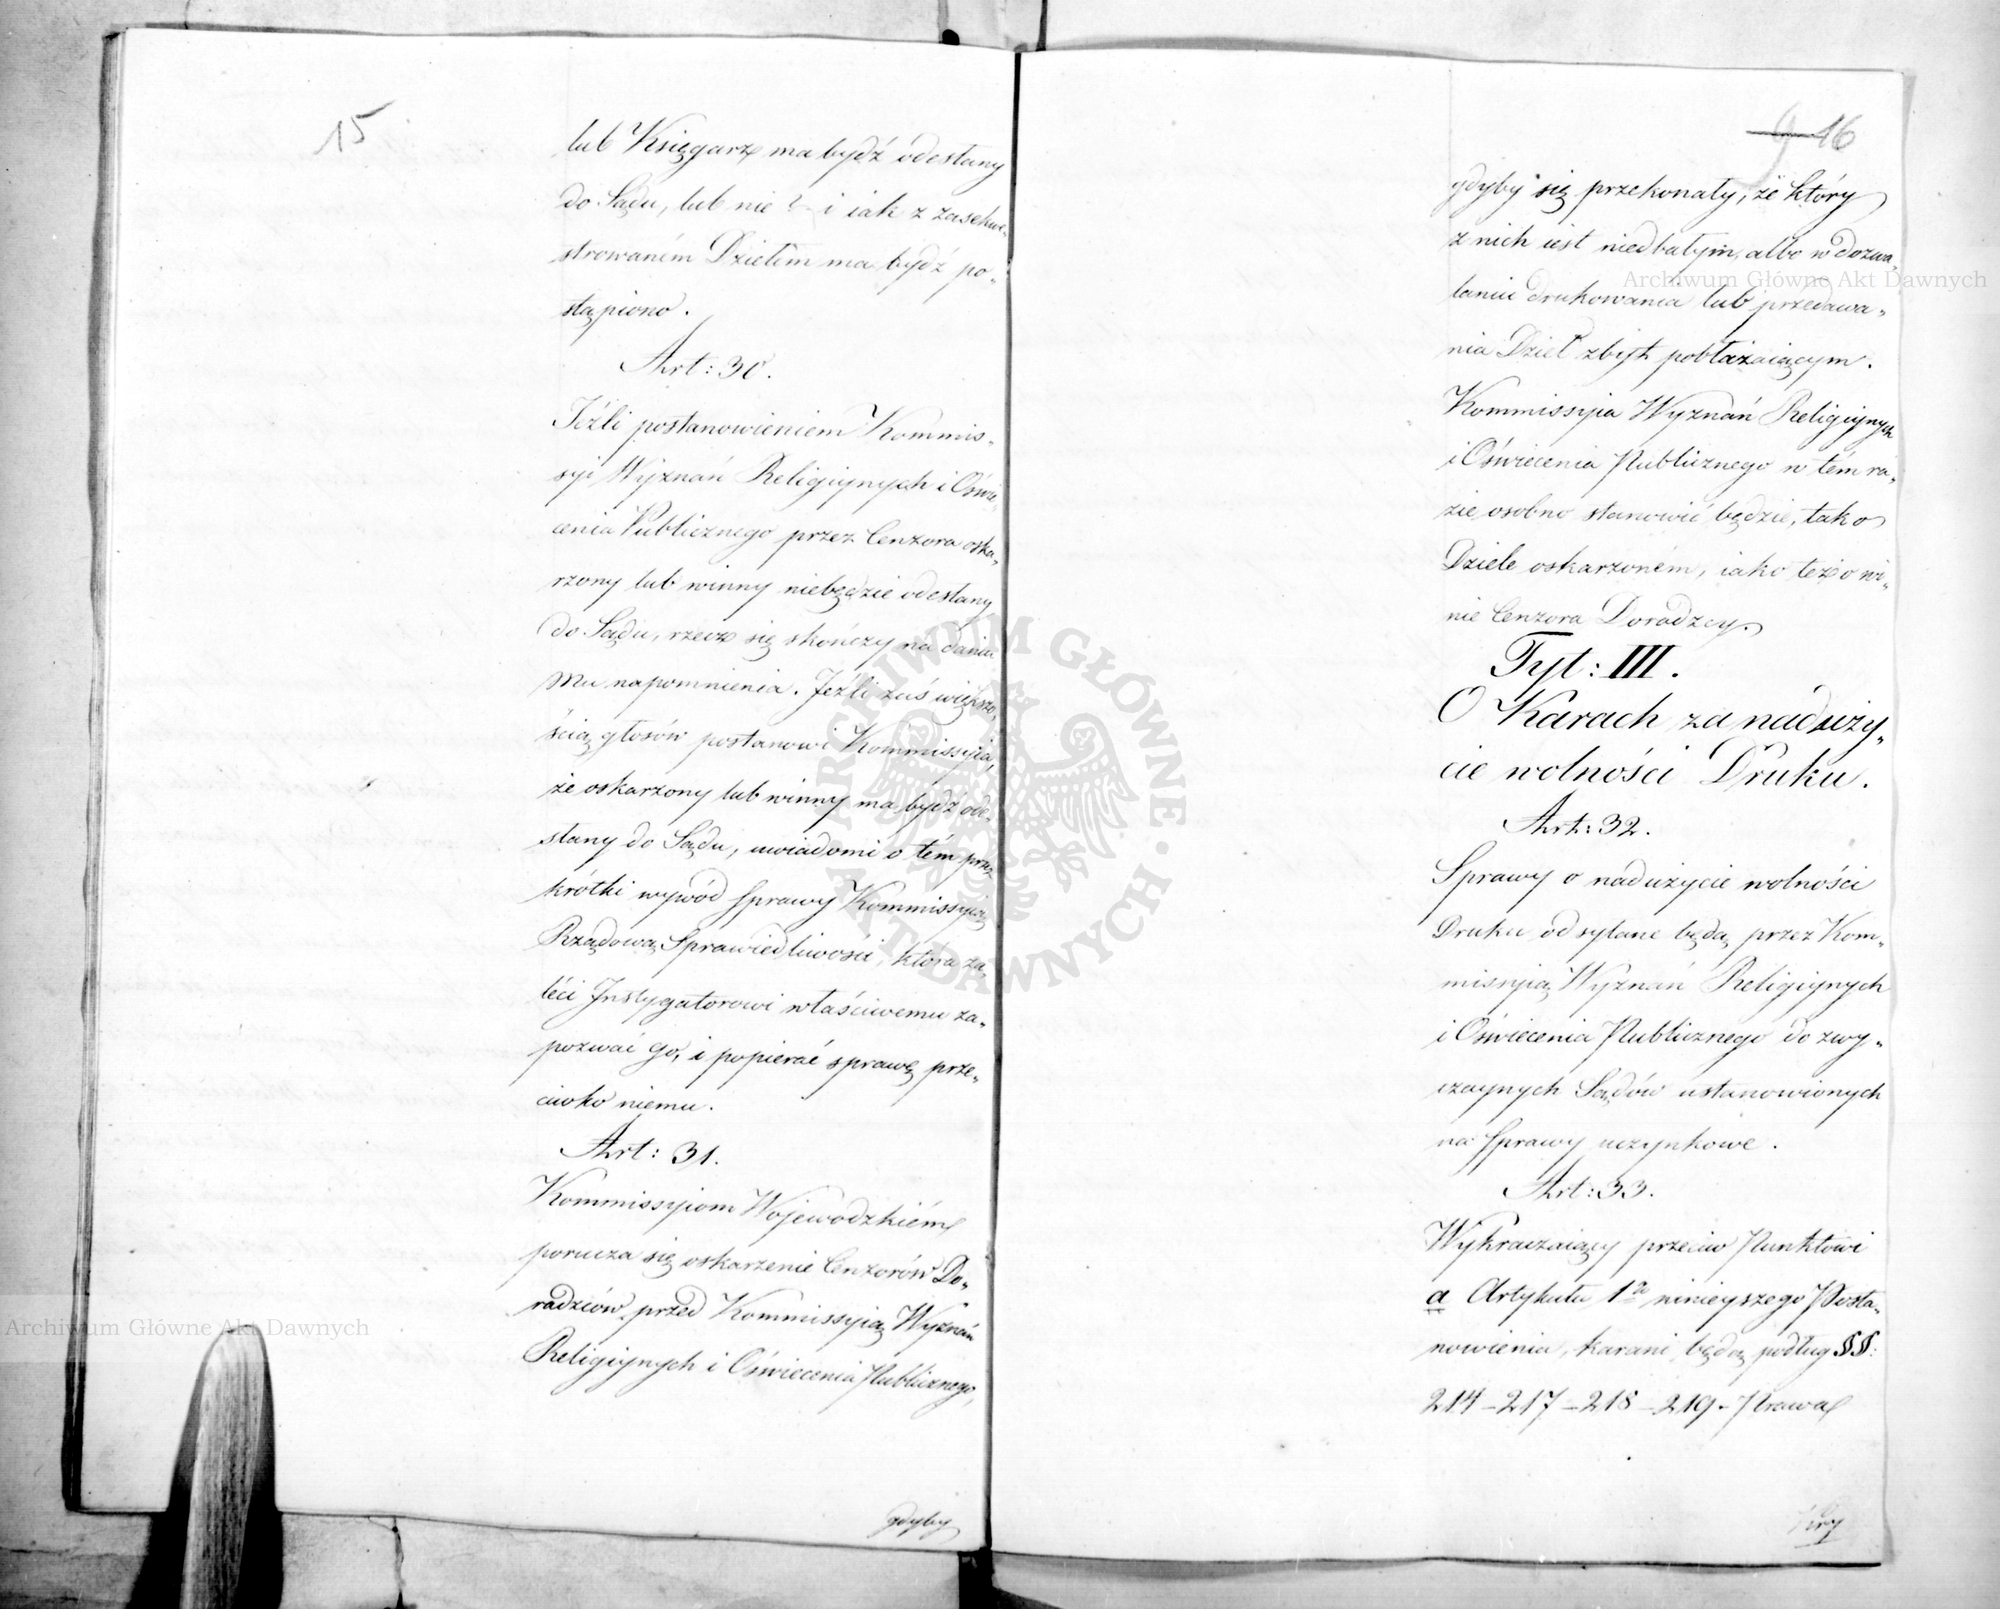 15
lub Księgarz ma bydź odesłany
do Sądu, lub nie? i iak z zasekwe-
strowaném Dziełem ma bydź po-
stąpiono.
Art: 30.
Jeźli postanowieniem Kommis-
syi Wyznań Religiynych i Oświe-
cenia Publicznego przez Cenzora oska-
rzony lub winny niebędzie odesłany
do Sądu, rzecz się skończy na daniu
Mu napomnienia. Jeźli zaś większo-
ścią głosów postanowi Kommissyia,
że oskarzony lub winny ma bydź ode-
słany do Sądu, uwiadomi o tém przez
krótki wywód Sprawy Kommissyią
Rządową Sprawiedliwości, która za-
léci Instygatorowi właściwemu za-
pozwać go, i popierać sprawę prze-
ciwko niemu.
Art: 31.
Kommissyiom Wojewodzkiém
porucza się oskarzenie Cenzorów Do-
radzców przed Kommissyią Wyznań
Religiynych i Oświecenia Publicznego,
gdyby
9 16
gdyby się przekonały, że który
z nich iest niedbałym, albo w dozwa-
laniu drukowania lub przedawa-
nia Dzieł zbyt pobłażaiącym.
Kommissyia Wyznań Religiynych
i Oświecenia Publicznego w tém ra-
zie osobno stanowić będzie, tak o
Dziele oskarzoném, iako też o wi-
nie Cenzora Doradzcy.
Tyt: III.
O Karach za naduży-
cie wolności Druku.
Art: 32.
Sprawy o nadużycie wolności
Druku odsyłane będą przez Kom-
missyią Wyznań Religiynych
i Oświecenia Publicznego do zwy-
czaynych Sądów ustanowionych
na Sprawy uczynkowe.
Art: 33.
Wykraczaiący przeciw Punktowi
a Artykułu 1go ninieyszego Posta-
nowienia, karani będą podług §§:
214 - 217 - 218 - 219 - Prawa
Archiwum Główne Akt Dawnych
Archiwum Główne Akt Dawnych
ARCHIWUM GŁÓWNE · AKT DAWNYCH ·